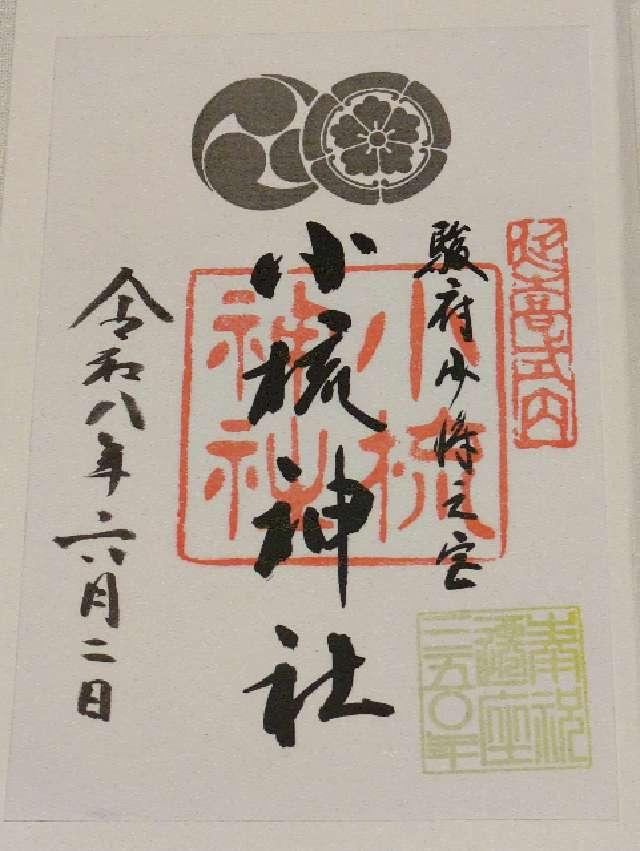 延喜式内
駿府少将之宮
小梳神社
小梳
神社
令和八年六月二日
奉祝
遷座
三五〇年